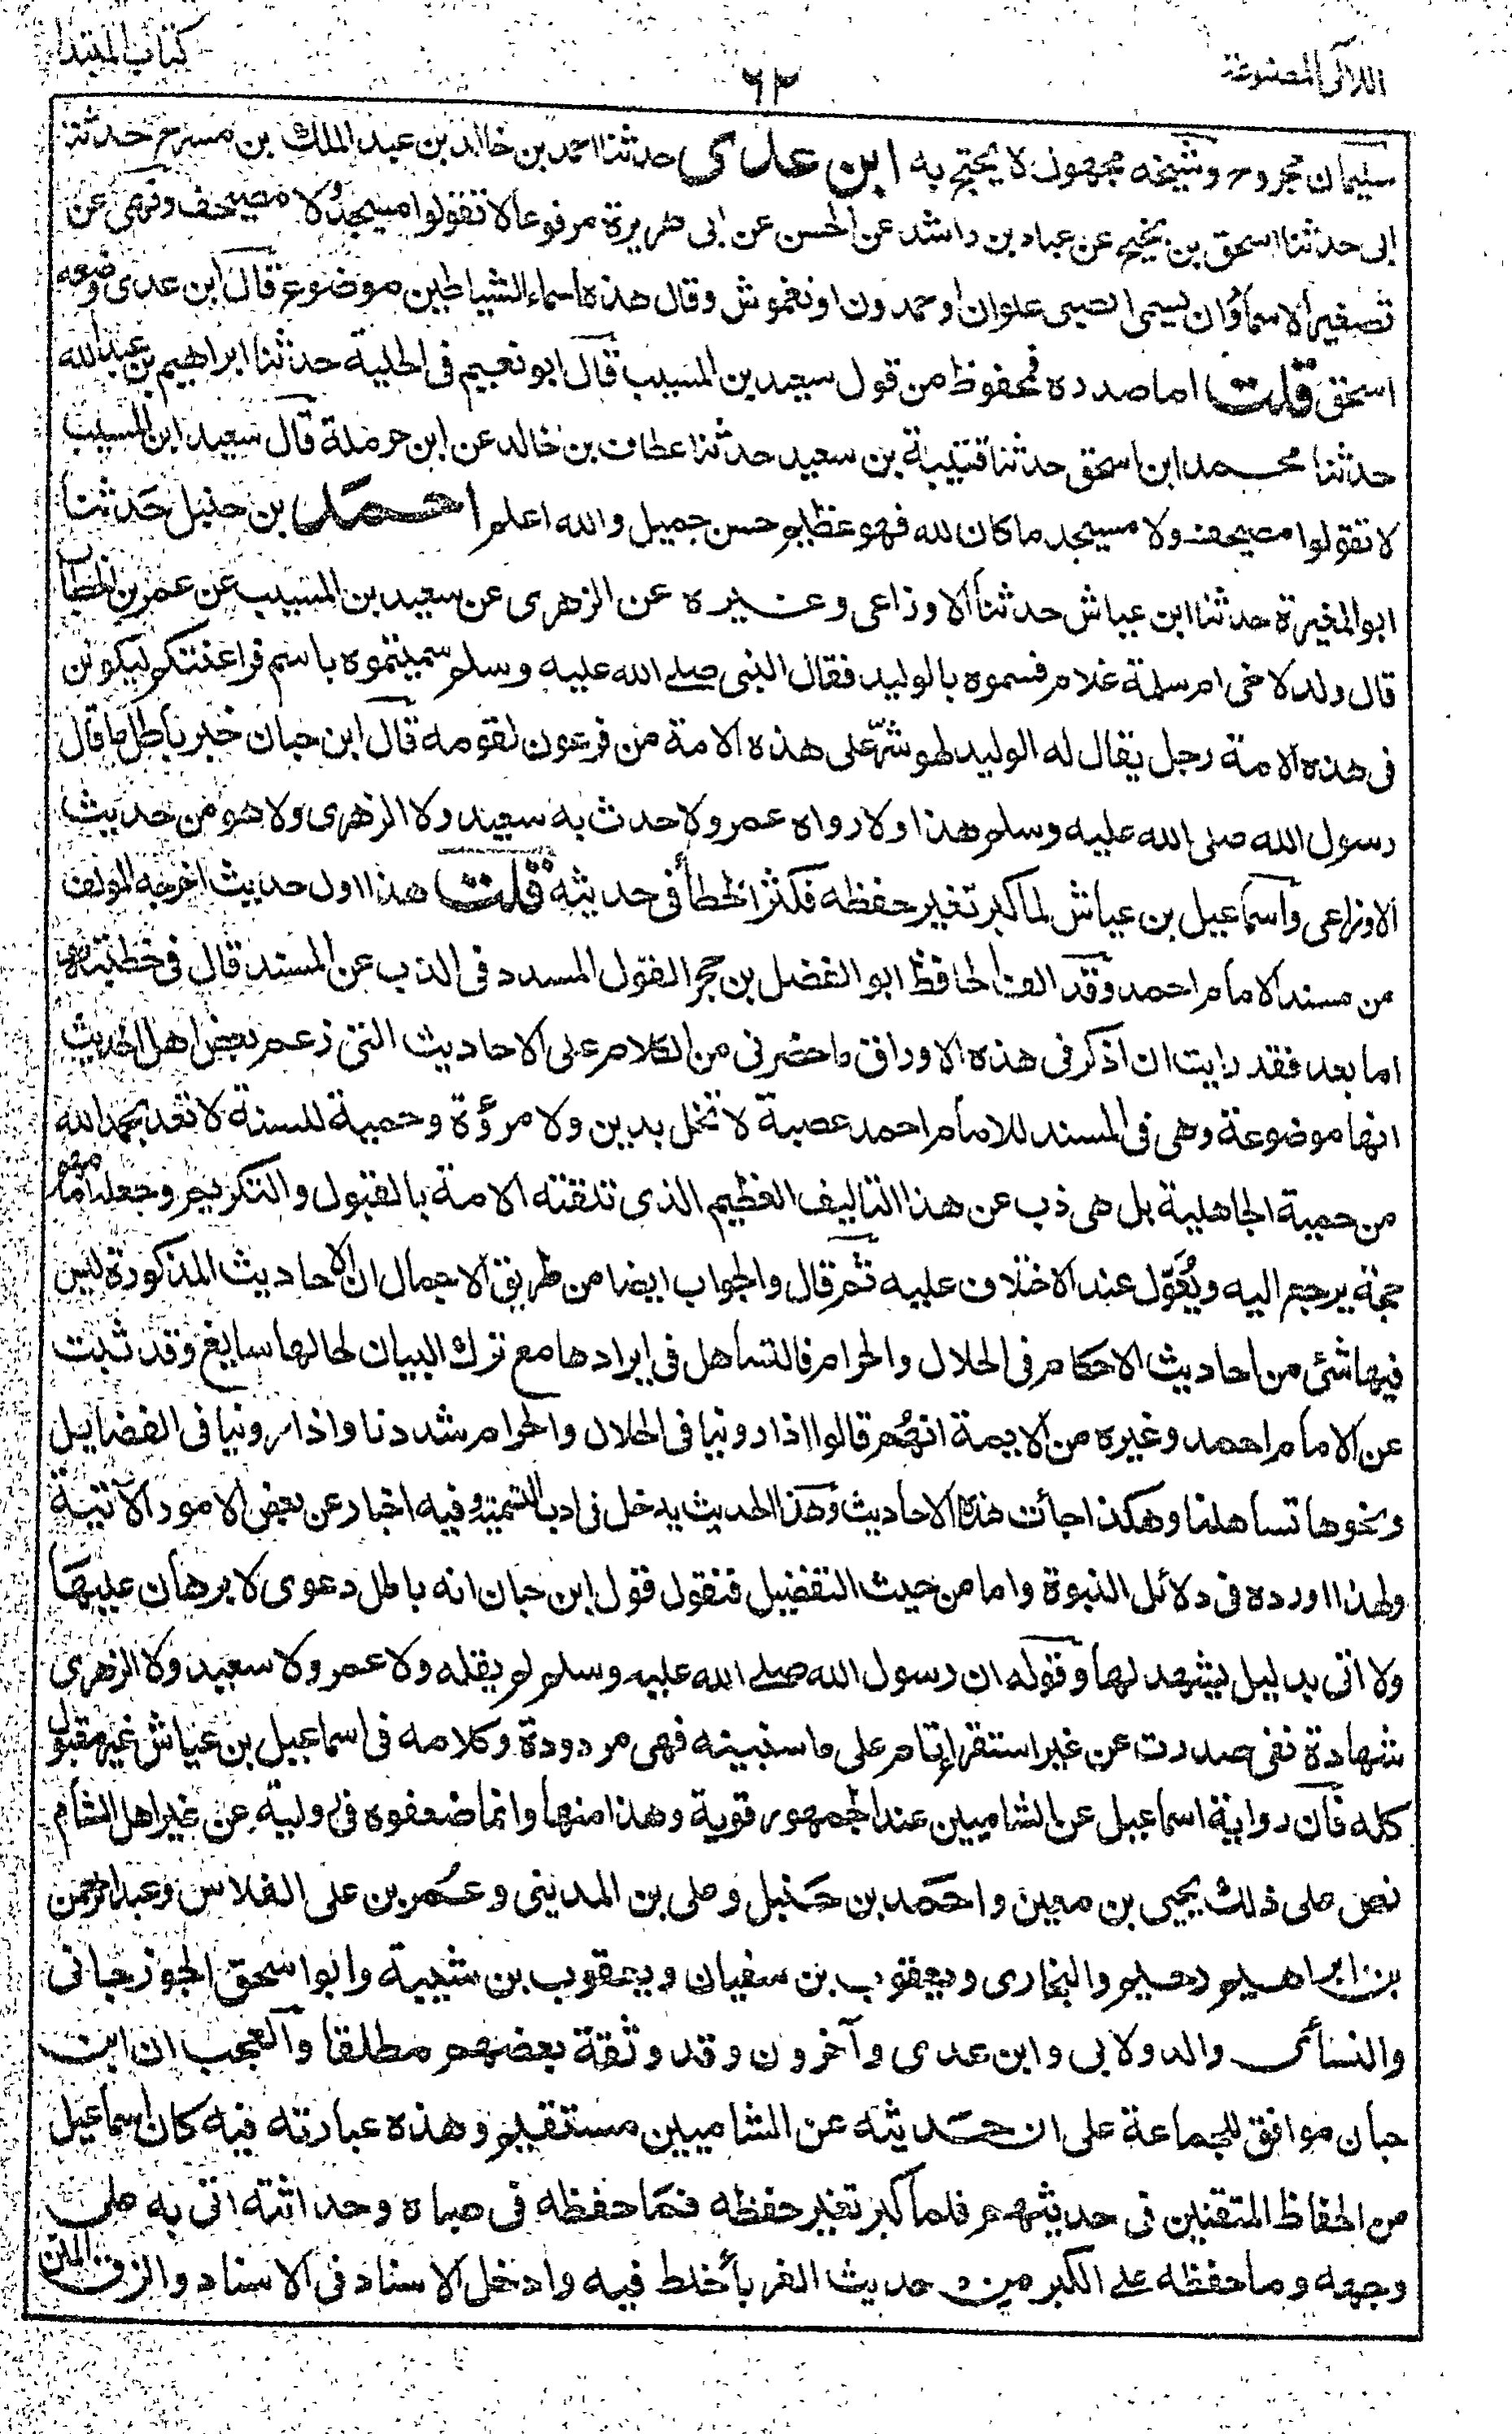 اللآلى المصنوعة
٦٣
كتاب المبتدا
سليمان مجروح وشيخه مجهول لا يحتج به ابن عدى حدثنا احمد بن خالد بن عبد الملك بن مسرح حدثنا
ابى حدثنا اسحق بن نجيح عن عباد بن راشد عن الحسن عن ابى هريرة مرفوعا لا تقولوا مسيجد ولا مصيحف ونهى عن
تصغير الاسماء وان يسمى الصبى علوان او حمدون او نغموش وقال هذه اسماء الشياطين موضوع قال ابن عدى وضعه
اسحق قلت اما صدره فمحفوظ من قول سعيد بن المسيب قال ابو نعيم فى الحلية حدثنا ابراهيم بن عبد الله
حدثنا محمد ابن اسحق حدثنا قتيبة بن سعيد حدثنا عطاف بن خالد عن ابن حرملة قال سعيد ابن المسيب
لا تقولوا مصيحف ولا مسيجد ما كان لله فهو عظيم حسن جميل والله اعلم احمد بن حنبل حدثنا
ابو المغيرة حدثنا ابن عياش حدثنا الاوزاعى وغيره عن الزهرى عن سعيد بن المسيب عن عمر بن الخطاب
قال ولد لاخى ام سلمة غلام فسموه بالوليد فقال النبى صلے الله عليه وسلم سميتموه باسم فراعنتكم ليكونن
فى هذه الامة رجل يقال له الوليد لهو شر على هذه الامة من فرعون لقومه قال ابن حبان خبر باطل ما قال
رسول الله صلى الله عليه وسلم هذا ولا رواه عمر ولا حدث به سعيد ولا الزهرى ولا هو من حديث
الاوزاعى واسماعيل بن عياش لما كبر تغير حفظه فكثر الخطأ فى حديثه قلت هذا اول حديث اخرجه المولف
من مسند الامام احمد وقد الف الحافظ ابو الفضل بن حجر القول المسدد فى الذب عن المسند قال فى خطبته
اما بعد فقد رايت ان اذكر فى هذه الاوراق ما حضرنى من الكلام على الاحاديث التى زعم بعض اهل الحديث
انها موضوعة وهى فى المسند للامام احمد عصبة لا تخل بدين ولا مروءة وحمية للسنة لا تعد بحمد الله
من حمية الجاهلية بل هى ذب عن هذا التاليف العظيم الذى تلقته الامة بالقبول والتكريم وجعله امامهم
حجة يرجع اليه ويعول عند الاختلاف عليه ثم قال والجواب ايضا من طريق الاجمال ان الاحاديث المذكورة ليس
فيها شئ من احاديث الاحكام فى الحلال والحرام فالتساهل فى ايرادها مع ترك البيان لحالها سايغ وقد ثبت
عن الامام احمد وغيره من الايمة انهم قالوا اذا روينا فى الحلال والحرام شددنا واذا روينا فى الفضايل
ونحوها تساهلنا وهكذا جأت هذه الاحاديث وهذا الحديث يدخل فى ادب التسمية وفيه اخبار عن بعض الامور الآتية
ولهذا اورده فى دلائل النبوة واما من حيث التفضيل فنقول قول ابن حبان انه باطل دعوى لا برهان عليها
ولا اتى بدليل يشهد لها وقوله ان رسول الله صلے الله عليه وسلم لم يقله ولا عمر ولا سعيد ولا الزهرى
شهادة نفى صدرت عن غير استقرا تام على ما سنبينه فهى مردودة وكلامه فى اسماعيل بن عياش غير مقبول
كله فان رواية اسماعيل عن الشاميين عند الجمهور قوية وهذا منها وانما ضعفوه فى روايته عن غير اهل الشام
نص على ذلك يحيى بن معين واحمد بن حنبل وعلى بن المدينى وعمر بن على الفلاس وعبد الرحمن
بن ابراهيم دحيم والبخارى ويعقوب بن سفيان ويعقوب بن شيبة وابو اسحق الجوزجانى
والنسائى والدولابى وابن عدى وآخرون وقد وثقه بعضهم مطلقا والعجب ان ابن
حبان موافق للجماعة على ان حديثه عن الشاميين مستقيم وهذه عبارته فيه كان اسماعيل
من الحفاظ المتقنين فى حديثهم فلما كبر تغير حفظه فما حفظه فى صباه وحداثته اتى به على
وجهه وما حفظه على الكبر من حديث الغربا خلط فيه وادخل الاسناد فى الاسناد والزق المتن